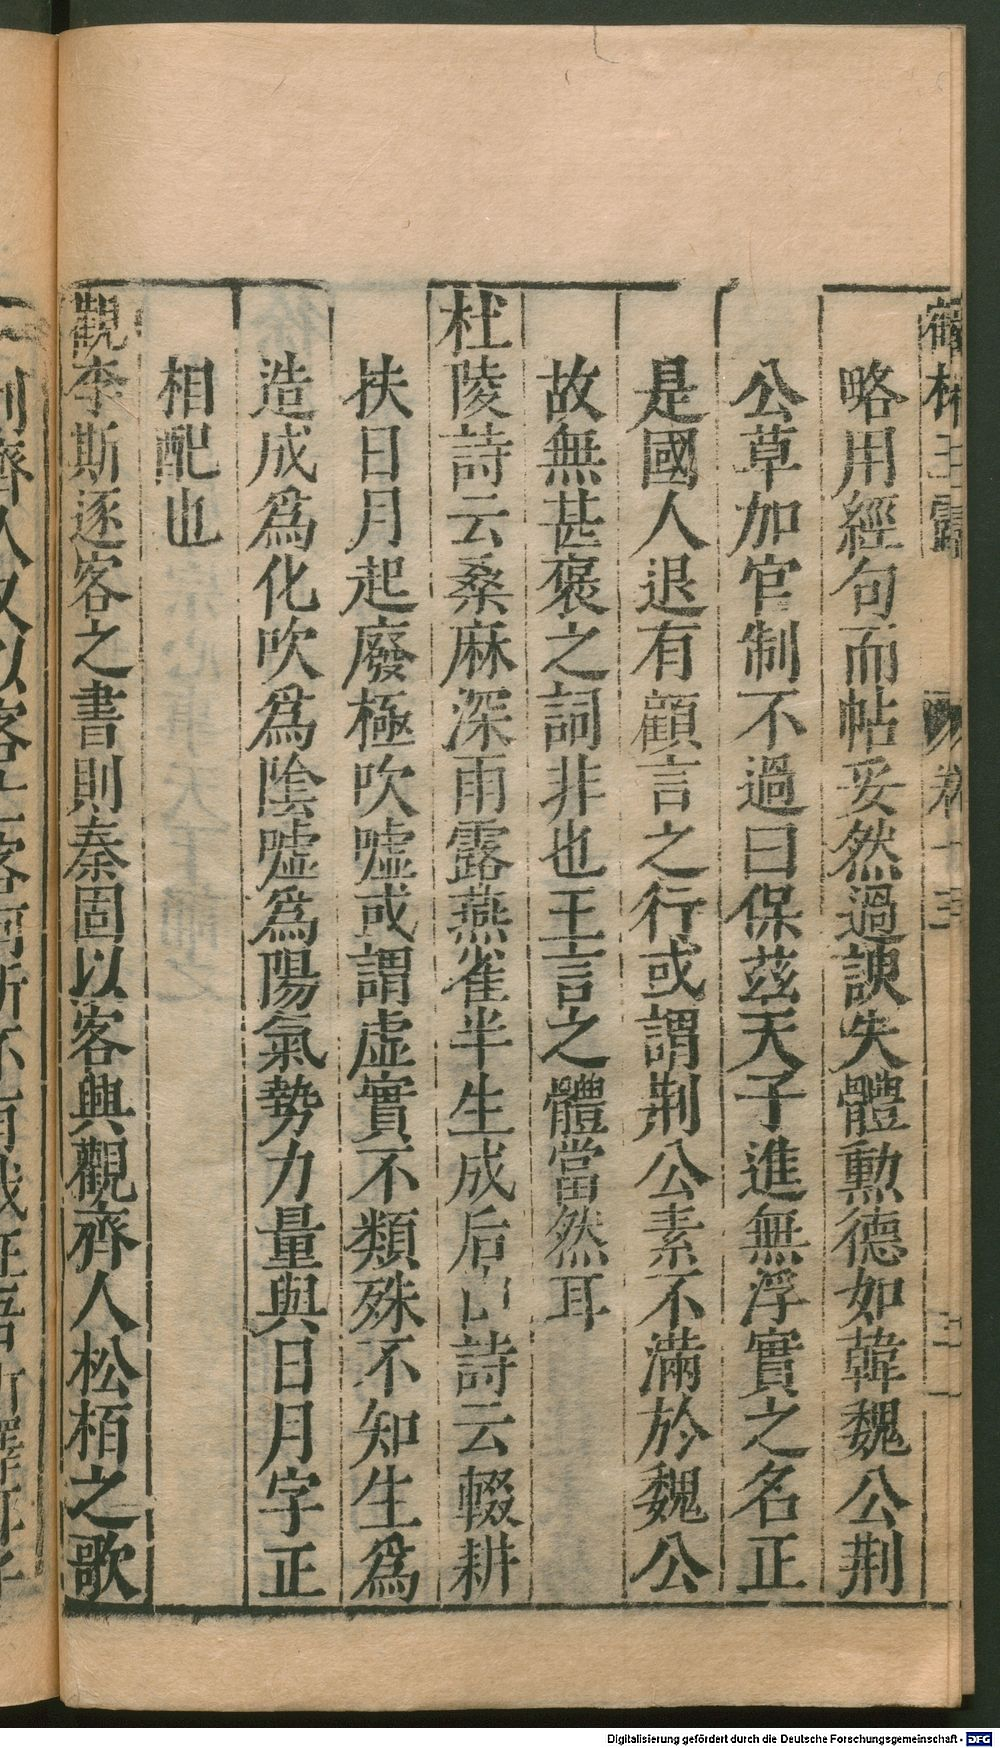 鶴林玉露 卷十三
略用經句而帖妥然過諛失體勲德如韓魏公荆
公草加官制不過曰保茲天子進無浮實之名正
是國人退有顧言之行或謂荆公素不滿於魏公
故無甚褒之詞非也王言之體當然耳
杜陵詩云桑麻深雨露燕雀半生成后山詩云輟耕
扶日月起廢極吹噓或謂虛實不類殊不知生爲
造成爲化吹爲陰噓爲陽氣勢力量與日月字正
相配也
觀李斯逐客之書則秦固以客興觀齊人松栢之歌
Digitalisierung gefördert durch die Deutsche Forschungsgemeinschaft - DFG